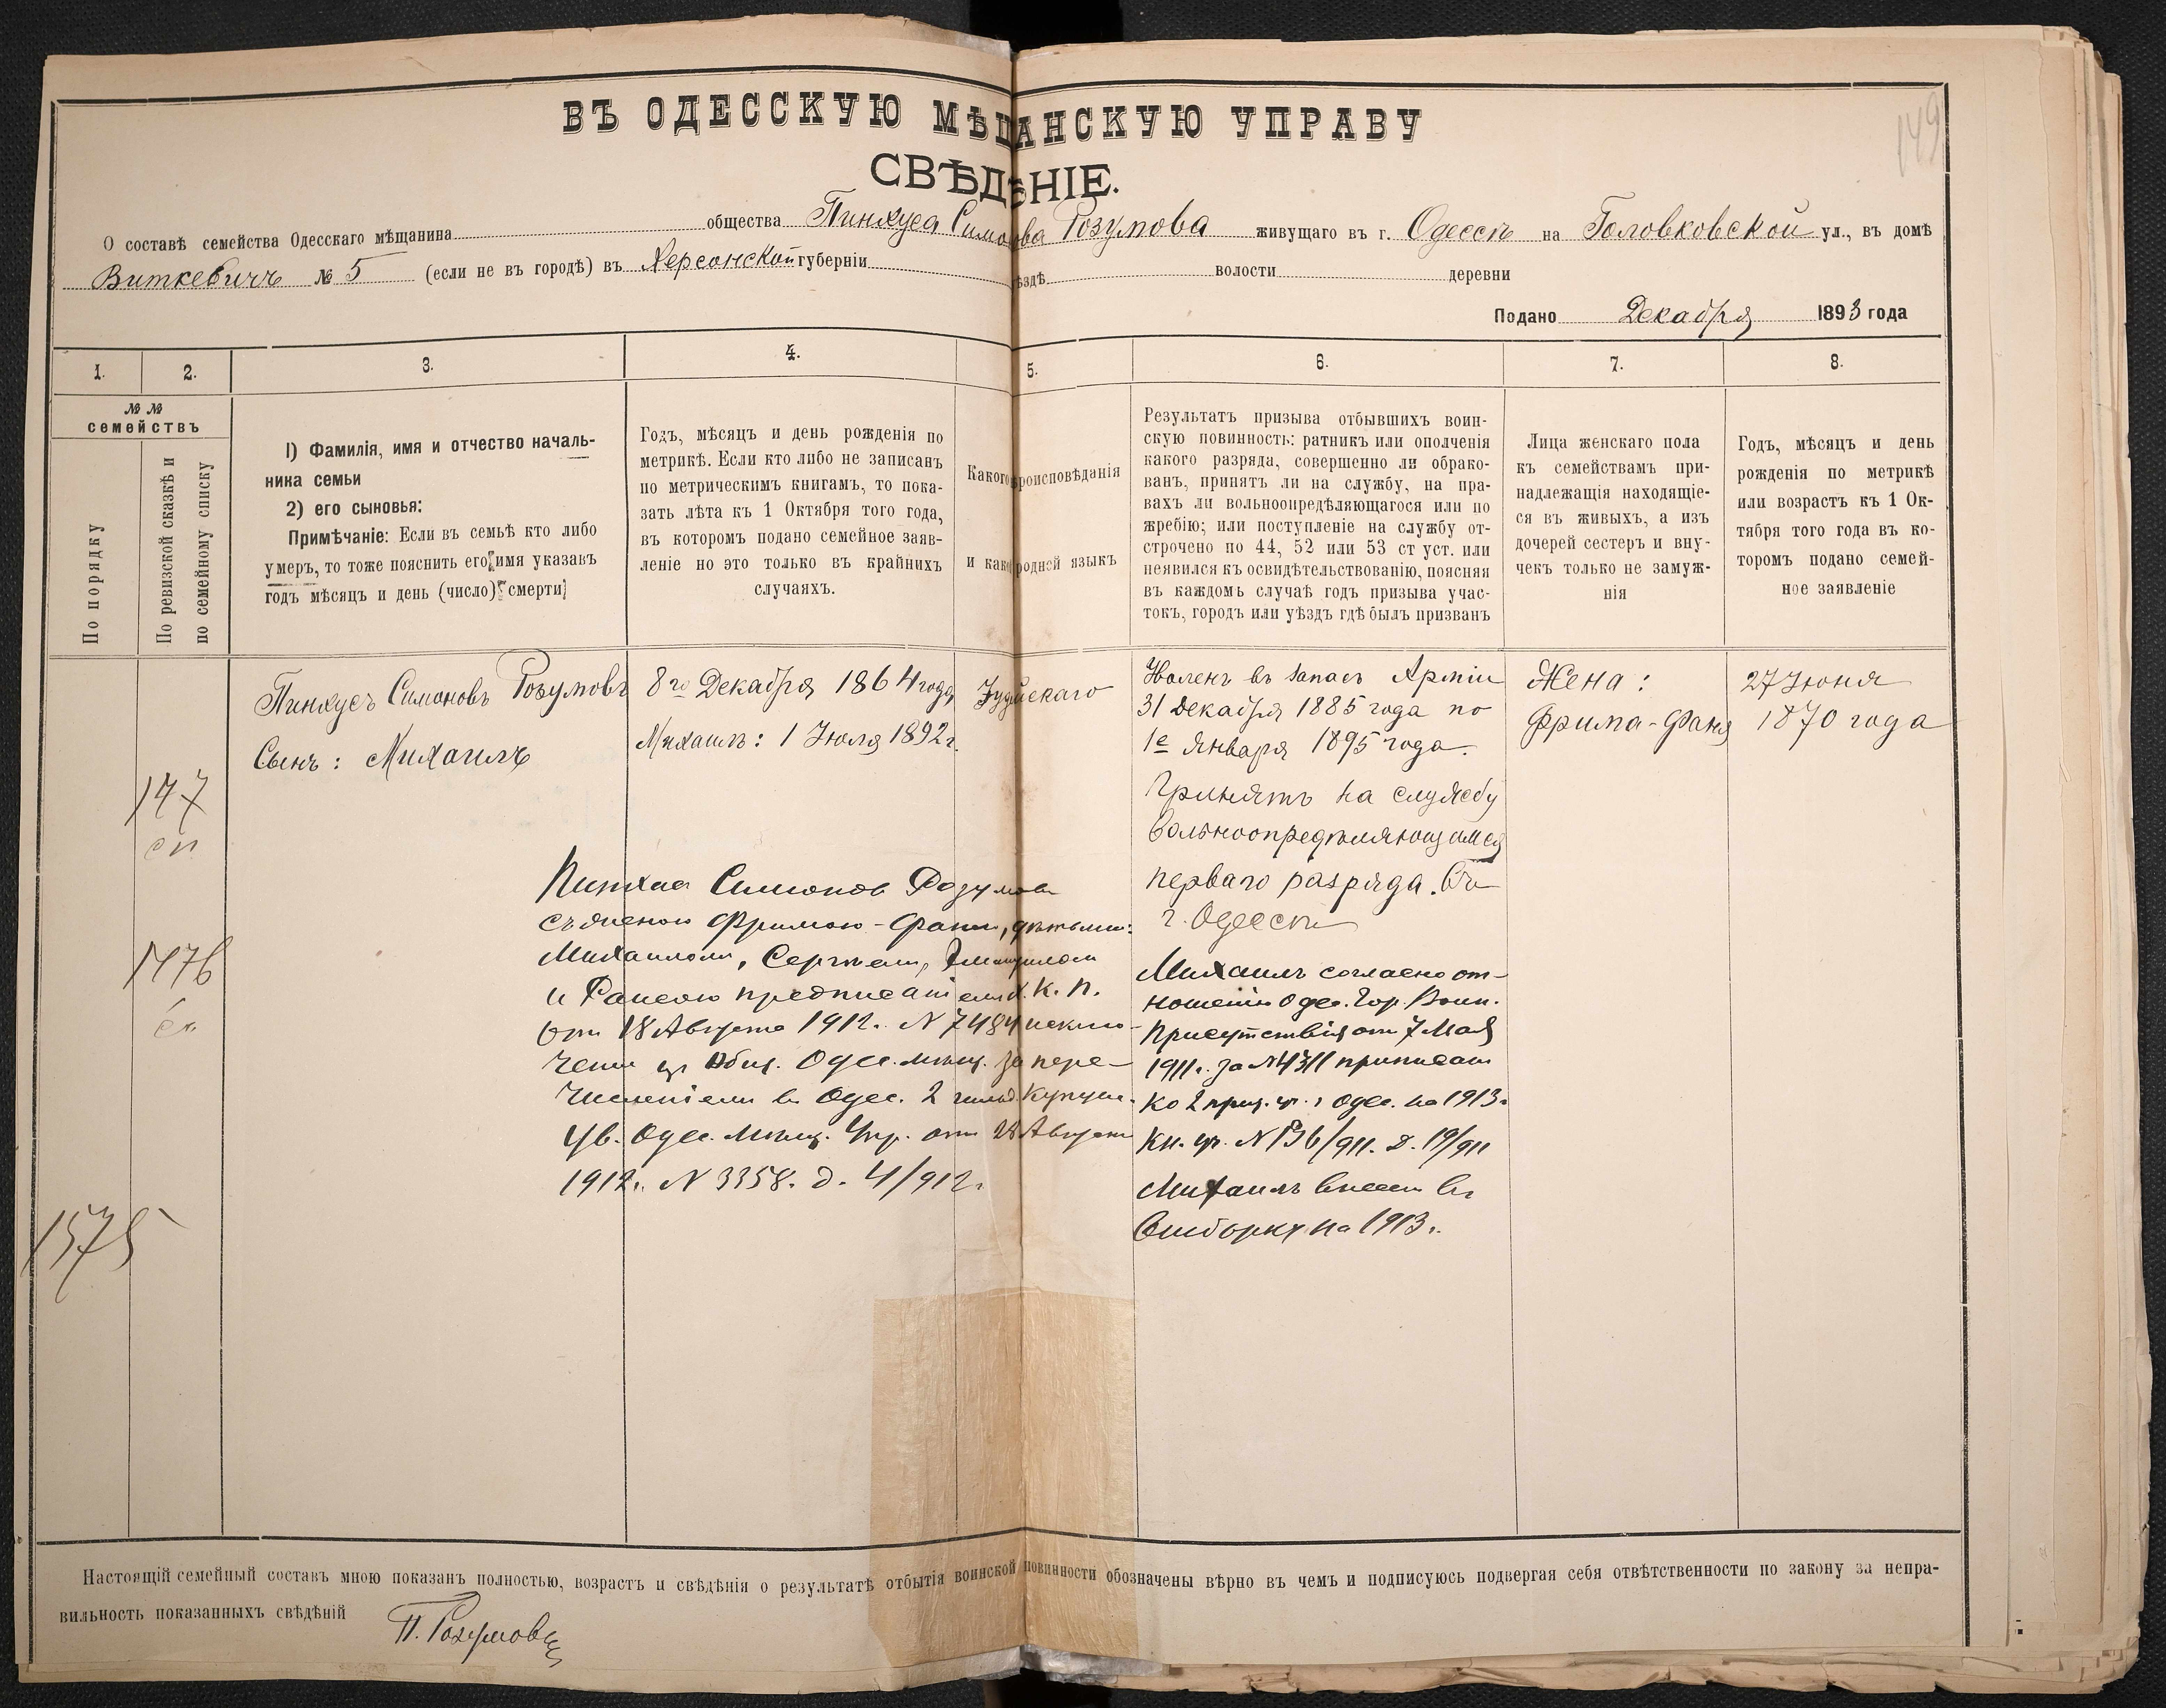 149
ВЪ ОДЕССКУЮ МѢЩАНСКУЮ УПРАВУ
СВѢДѢНІЕ.
О составѣ семейства Одесскаго мѣщанина общества Пинхуса Симонова Розумова живущаго въ г. Одессѣ на Головковской ул., въ домѣ
Виткевичъ № 5 (если не въ городѣ) въ Херсонской губерніи ѣздѣ волости деревни
Подано Декабря 1893 года
1.
2.
3.
4.
5.
6.
7.
8.
№ №
семействъ
По порядку
По ревизской сказкѣ и
по семейному списку
1) Фамилія, имя и отчество началь-
ника семьи
2) его сыновья:
Примѣчаніе: Если въ семьѣ кто либо
умеръ, то тоже пояснить его имя указавъ
годъ мѣсяцъ и день (число) смерти
Годъ, мѣсяцъ и день рожденія по
метрикѣ. Если кто либо не записанъ
по метрическимъ книгамъ, то пока-
зать лѣта къ 1 Октября того года,
въ которомъ подано семейное заяв-
леніе но это только въ крайнихъ
случаяхъ.
Какого вѣроисповѣданія
и какой родной языкъ
Результатъ призыва отбывшихъ воин-
скую повинность: ратникъ или ополченія
какого разряда, совершенно ли обрако-
ванъ, принятъ ли на службу, на пра-
вахъ ли вольноопредѣляющагося или по
жребію; или поступленіе на службу от-
строчено по 44, 52 или 53 ст уст. или
неявился къ освидѣтельствованію, поясняя
въ каждомъ случаѣ годъ призыва учас-
токъ, городъ или уѣздъ гдѣ былъ призванъ
Лица женскаго пола
къ семействамъ при-
надлежащія находящіе-
ся въ живыхъ, а изъ
дочерей сестеръ и вну-
чекъ только не замуж-
нія
Годъ, мѣсяцъ и день
рожденія по метрикѣ
или возрастъ къ 1 Ок-
тября того года въ ко-
торомъ подано семей-
ное заявленіе
Пинхусъ Симоновъ Розумовъ
Сынъ: Михаилъ
8го Декабря 1864 года
Михаилъ: 1 Іюля 1892 г.
Іудейскаго
Уволенъ въ запасъ Арміи
31 Декабря 1885 года по
1е Января 1895 года.
Принятъ на службу
вольноопредѣляющимся
перваго разряда. Въ
г. Одессѣ
Жена:
Фрима-Фаня
27 Іюня
1870 года
147
сп
1476
сп
1575
Пинхас Симонов Розумовъ
съ женою Фримою-Фаней, дѣтьми:
Михаилом, Сергѣем,
и Раисою предписаніем Х. К. П.
от 18 Августа 1912 г. N 7484 исклю-
чены из Общ. Одес. мѣщ. за пере-
численіем в Одес. 2 гильд. купцы.
Ув. Одес. Мѣщ. Упр. от 28 Августа
1912 г. N 3358. д. 4/912 г.
Михаилъ согласно от-
ношенію Одес. Гор. Воин.
Присутствія от 7 Мая
1911 г. за N 4311 приписан
ко 2 приз. уч. г. Одес. на 1913 г.
Кн. N 136/911. д. 19/911
Михаилъ внесен въ
выборку на 1913 г.
Настоящій семейный составъ мною показанъ полностью, возрастъ и свѣдѣнія о результатѣ отбытія воинской повинности обозначены вѣрно въ чемъ и подписуюсь подвергая себя отвѣтственности по закону за непра-
вильность показанныхъ свѣдѣній
П. Розумовъ